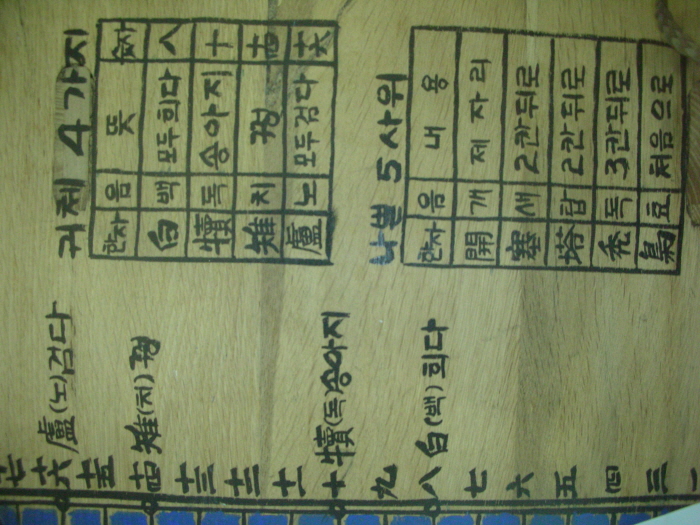 귀체 4가지
한자 음 뜻 숫자
白 백 모두희다 八
犢 독 송아지 十
雉 치 꿩 十四
盧 노 모두검다 十六
나쁜 5사위
한자 음 내용
開 개 제자리
塞 새 2칸뒤로
塔 탑 2칸뒤로
禿 독 3칸뒤로
梟 효 처음으로
十七
十六 盧(노)검다
十五
十四 雉(치)꿩
十三
十二
十一
十 犢(독)송아지
九
八 白(백)희다
七
六
五
四
三